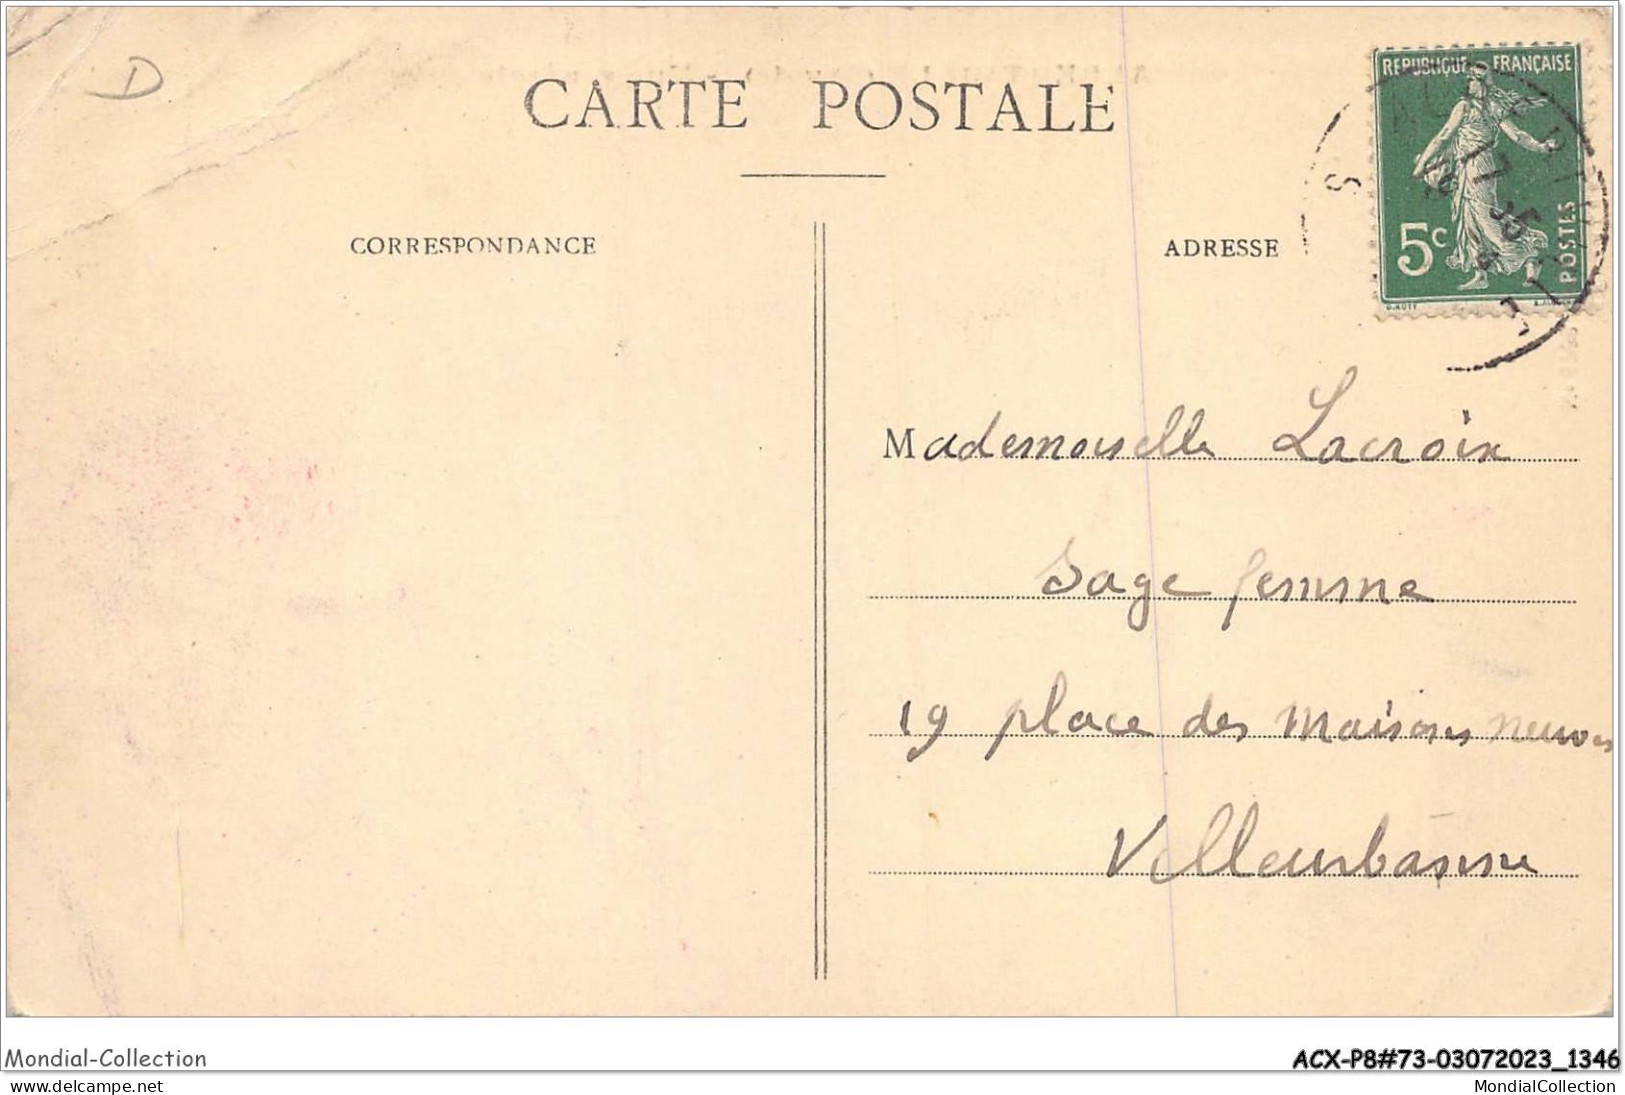 D
CARTE POSTALE
CORRESPONDANCE
ADRESSE
REPUBLIQUE FRANÇAISE
5c
POSTES
O.ROTY
17 -5
Mademoiselle Lacroix
Sage femme
19 place des Maisons neuves
Villeurbanne
Mondial-Collection
ACX-P8#73-03072023_1346
www.delcampe.net
MondialCollection